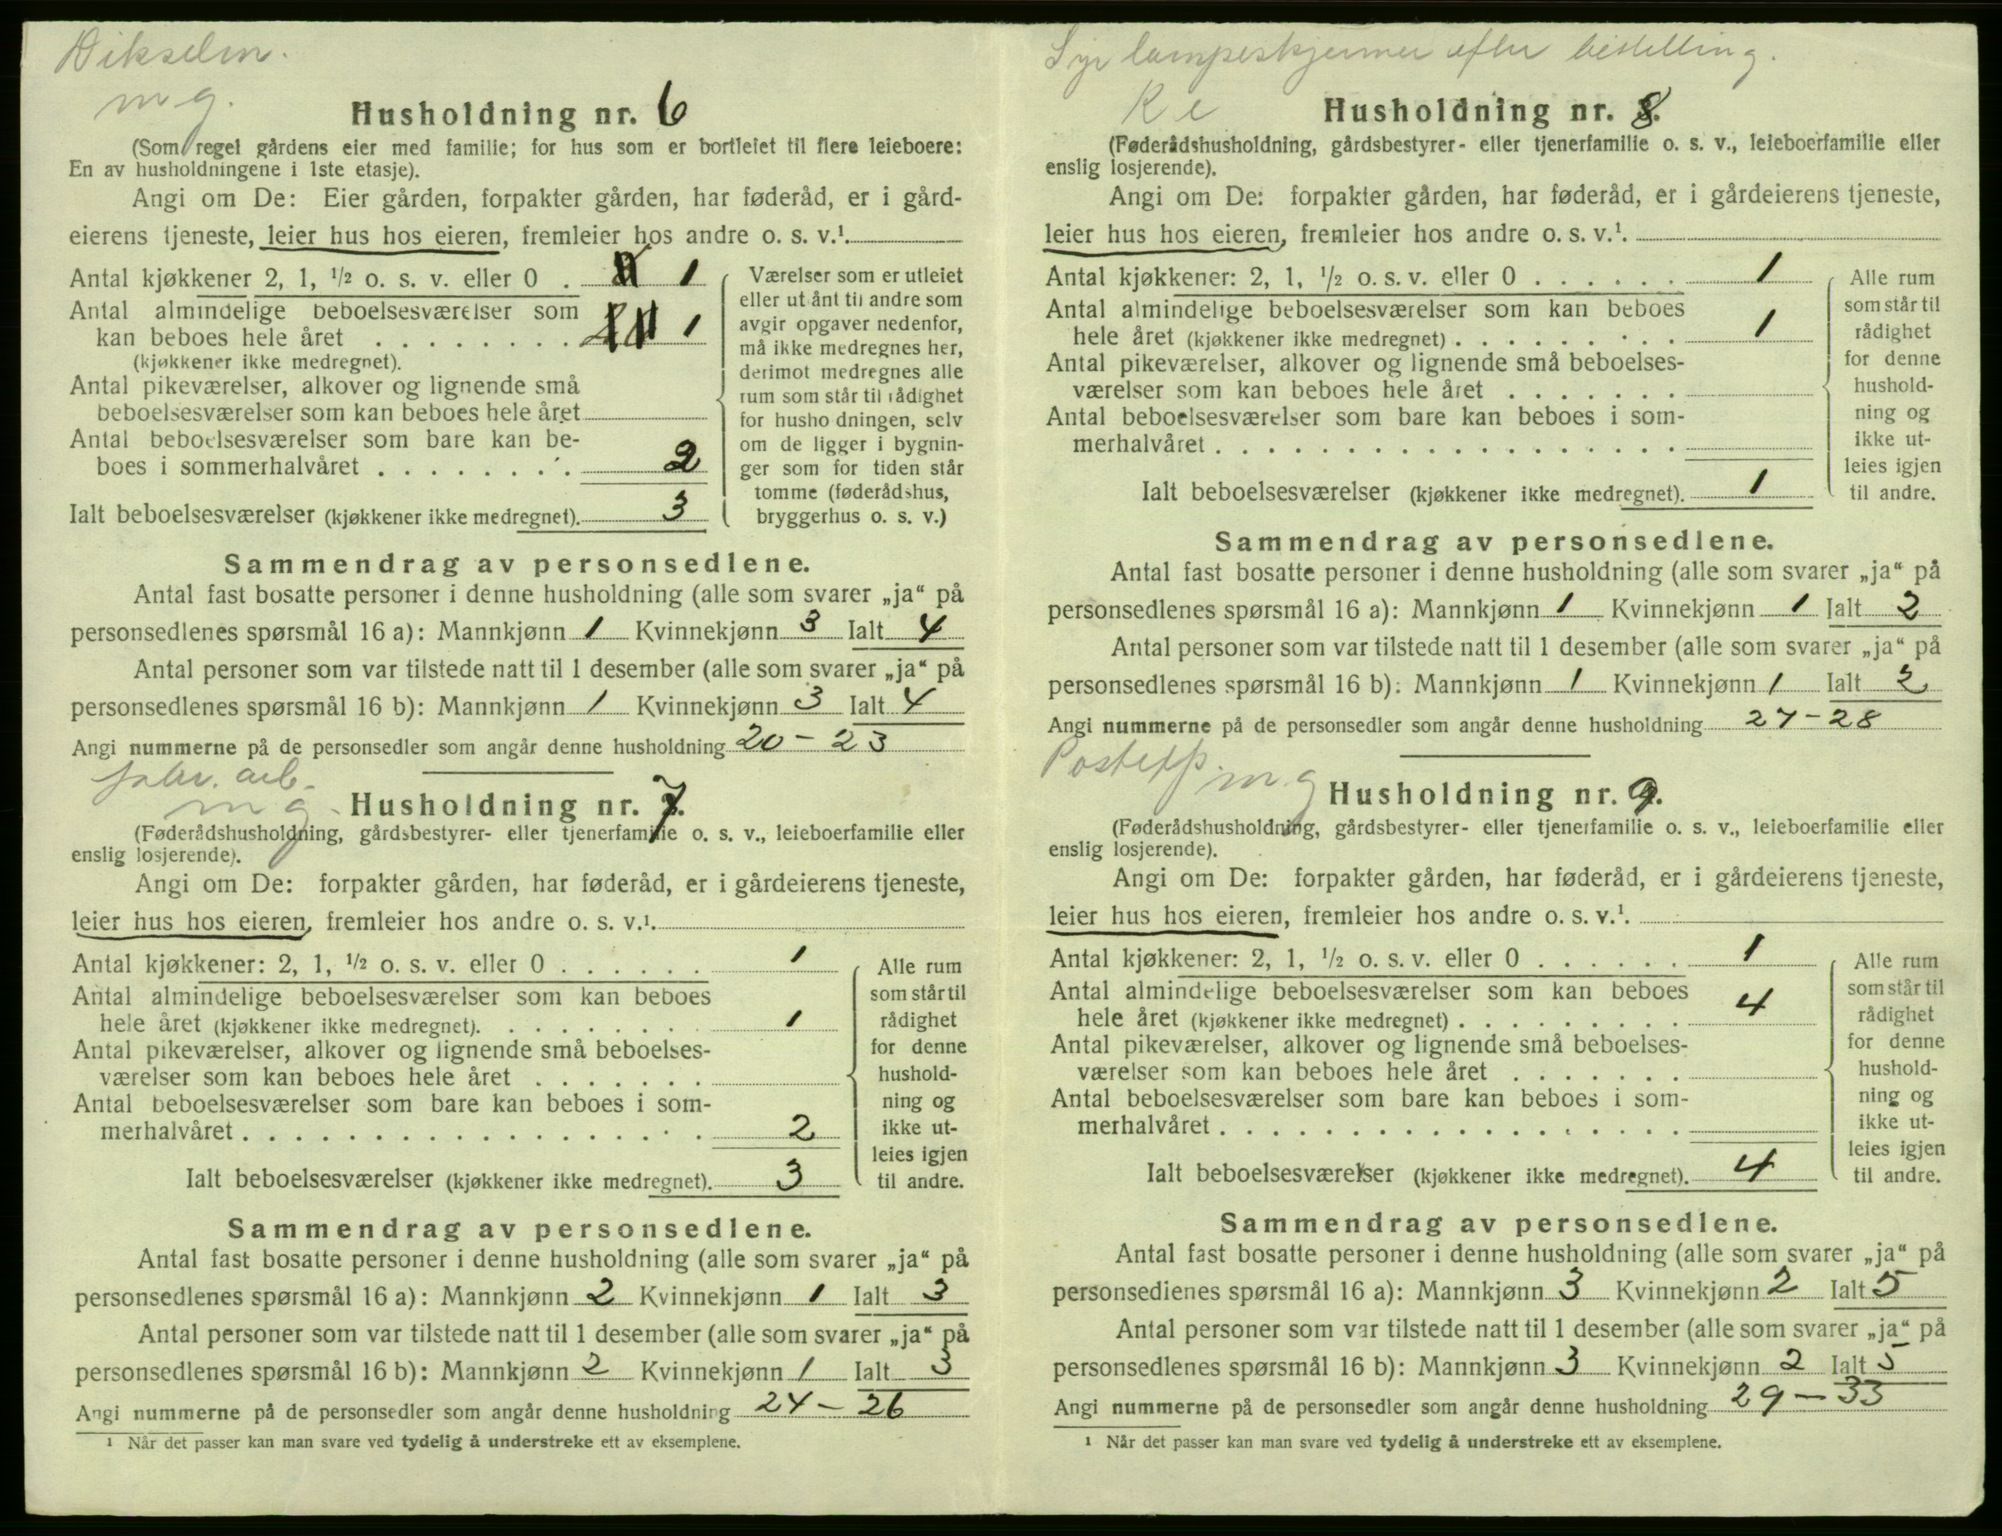 Dikselm.
m g.
Husholdning nr. 6
(Som regel gårdens eier med familie; for hus som er bortleiet til flere leieboere:
En av husholdningene i 1ste etasje).
Angi om De: Eier gården, forpakter gården, har føderåd, er i gård-
eierens tjeneste, leier hus hos eieren, fremleier hos andre o. s. v.¹.
Antal kjøkkener 2, 1, ½ o. s. v. eller 0 . 1
Antal almindelige beboelsesværelser som
kan beboes hele året . . . . . . . . 1
(kjøkkener ikke medregnet).
Antal pikeværelser, alkover og lignende små
beboelsesværelser som kan beboes hele året
Antal beboelsesværelser som bare kan be-
boes i sommerhalvåret . . . . . . . . 2
Ialt beboelsesværelser (kjøkkener ikke medregnet). 3
Værelser som er utleiet
eller utlånt til andre som
avgir opgaver nedenfor,
må ikke medregnes her,
derimot medregnes alle
rum som står til rådighet
for husholdningen, selv
om de ligger i bygnin-
ger som for tiden står
tomme (føderådshus,
bryggerhus o. s. v.)
Sammendrag av personsedlene.
Antal fast bosatte personer i denne husholdning (alle som svarer „ja“ på
personsedlenes spørsmål 16 a): Mannkjønn 1 Kvinnekjønn 3 Ialt 4
Antal personer som var tilstede natt til 1 desember (alle som svarer „ja“ på
personsedlenes spørsmål 16 b): Mannkjønn 1 Kvinnekjønn 3 Ialt 4
Angi nummerne på de personsedler som angår denne husholdning 20 - 23
fabr. arb.
m g
Husholdning nr. 7.
(Føderådshusholdning, gårdsbestyrer- eller tjenerfamilie o. s. v., leieboerfamilie eller
enslig losjerende).
Angi om De: forpakter gården, har føderåd, er i gårdeierens tjeneste,
leier hus hos eieren, fremleier hos andre o. s. v.¹.
Antal kjøkkener: 2, 1, ½ o. s. v. eller 0 . . . . . . 1
Antal almindelige beboelsesværelser som kan beboes
hele året (kjøkkener ikke medregnet). . . . . . . . . 1
Antal pikeværelser, alkover og lignende små beboelses-
værelser som kan beboes hele året . . . . . . .
Antal beboelsesværelser som bare kan beboes i som-
merhalvåret . . . . . . . . . . . . . . . . . . 2
Ialt beboelsesværelser (kjøkkener ikke medregnet). 3
Alle rum
som står til
rådighet
for denne
hushold-
ning og
ikke ut-
leies igjen
til andre.
Sammendrag av personsedlene.
Antal fast bosatte personer i denne husholdning (alle som svarer „ja“ på
personsedlenes spørsmål 16 a): Mannkjønn 2 Kvinnekjønn 1 Ialt 3
Antal personer som var tilstede natt til 1 desember (alle som svarer „ja“ på
personsedlenes spørsmål 16 b): Mannkjønn 2 Kvinnekjønn 1 Ialt 3
Angi nummerne på de personsedler som angår denne husholdning 24 - 26
¹ Når det passer kan man svare ved tydelig å understreke ett av eksemplene.
Syr lampeskjermer efter bestilling.
K e
Husholdning nr. 8.
(Føderådshusholdning, gårdsbestyrer- eller tjenerfamilie o. s. v., leieboerfamilie eller
enslig losjerende).
Angi om De: forpakter gården, har føderåd, er i gårdeierens tjeneste,
leier hus hos eieren, fremleier hos andre o. s. v.¹.
Antal kjøkkener: 2, 1, ½ o. s. v. eller 0 . . . . . . 1
Antal almindelige beboelsesværelser som kan beboes
hele året (kjøkkener ikke medregnet) . . . . . . . . . 1
Antal pikeværelser, alkover og lignende små beboelses-
værelser som kan beboes hele året . . . . . . .
Antal beboelsesværelser som bare kan beboes i som-
merhalvåret . . . . . . . . . . . . . . . . . .
Ialt beboelsesværelser (kjøkkener ikke medregnet). 1
Alle rum
som står til
rådighet
for denne
hushold-
ning og
ikke ut-
leies igjen
til andre.
Sammendrag av personsedlene.
Antal fast bosatte personer i denne husholdning (alle som svarer „ja“ på
personsedlenes spørsmål 16 a): Mannkjønn 1 Kvinnekjønn 1 Ialt 2
Antal personer som var tilstede natt til 1 desember (alle som svarer „ja“ på
personsedlenes spørsmål 16 b): Mannkjønn 1 Kvinnekjønn 1 Ialt 2
Angi nummerne på de personsedler som angår denne husholdning 27 - 28
Posteksp. m g
Husholdning nr. 9.
(Føderådshusholdning, gårdsbestyrer- eller tjenerfamilie o. s. v., leieboerfamilie eller
enslig losjerende).
Angi om De: forpakter gården, har føderåd, er i gårdeierens tjeneste,
leier hus hos eieren, fremleier hos andre o. s. v.¹.
Antal kjøkkener: 2, 1, ½ o. s. v. eller 0 . . . . . . 1
Antal almindelige beboelsesværelser som kan beboes
hele året (kjøkkener ikke medregnet) . . . . . . . . . 4
Antal pikeværelser, alkover og lignende små beboelses-
værelser som kan beboes hele året . . . . . . .
Antal beboelsesværelser som bare kan beboes i som-
merhalvåret . . . . . . . . . . . . . . . . . .
Ialt beboelsesværelser (kjøkkener ikke medregnet). 4
Alle rum
som står til
rådighet
for denne
hushold-
ning og
ikke ut-
leies igjen
til andre.
Sammendrag av personsedlene.
Antal fast bosatte personer i denne husholdning (alle som svarer „ja“ på
personsedlenes spørsmål 16 a): Mannkjønn 3 Kvinnekjønn 2 Ialt 5
Antal personer som var tilstede natt til 1 desember (alle som svarer „ja“ på
personsedlenes spørsmål 16 b): Mannkjønn 3 Kvinnekjønn 2 Ialt 5
Angi nummerne på de personsedler som angår denne husholdning 29 - 33
¹ Når det passer kan man svare ved tydelig å understreke ett av eksemplene.